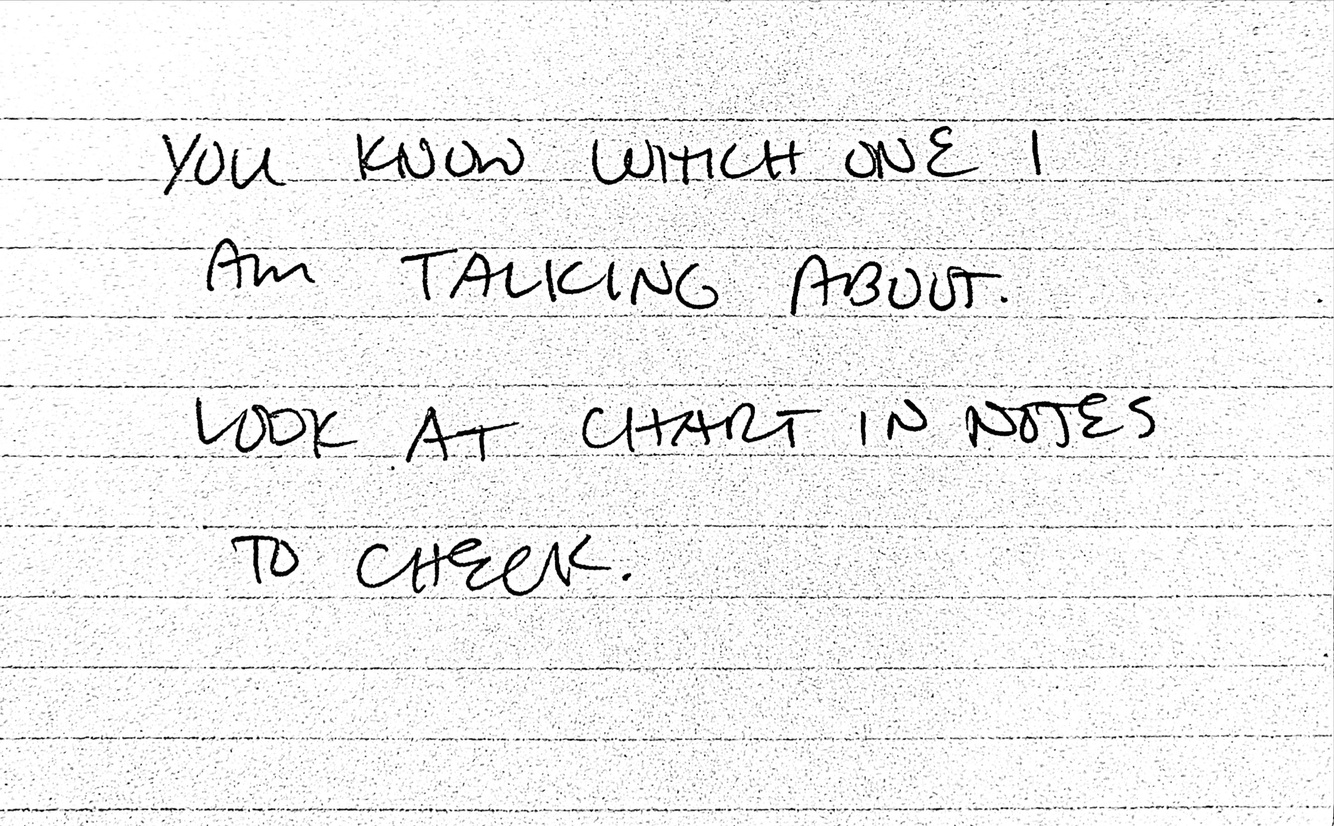 YOU KNOW WHICH ONE I
AM TALKING ABOUT.
LOOK AT CHART IN NOTES
TO CHECK.